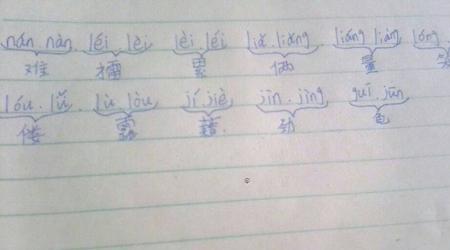 nán nàn. léi lèi lèi. léi liǎ. liǎng liáng liàng lóng
难 擂 累 俩 量
lóu. lǚ lù lòu jí. jiè jìn. jìng guī jūn
偻 露 藉 劲 龟